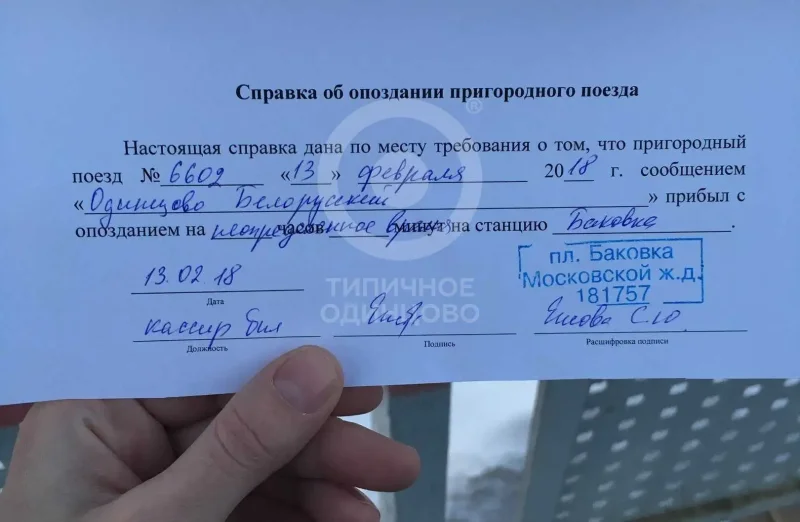 Справка об опоздании пригородного поезда
Настоящая справка дана по месту требования о том, что пригородный
поезд № 6602 «13» февраля 2018 г. сообщением
«Одинцово Белорусский» прибыл с
опозданием на неопределенное время часов минут на станцию Баковка.
пл. Баковка
Московской ж.д.
181757
13.02.18
Дата
кассир бил
Должность
Подпись
С.Ю.
Расшифровка подписи
®
ТИПИЧНОЕ
ОДИНЦОВО